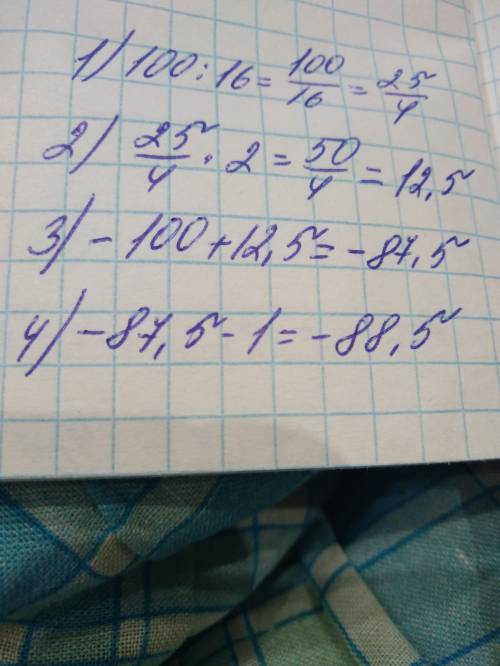 1) 100 : 16 = 100/16 = 25/4
2) 25/4 · 2 = 50/4 = 12,5
3) - 100 + 12,5 = - 87,5
4) - 87,5 - 1 = - 88,5